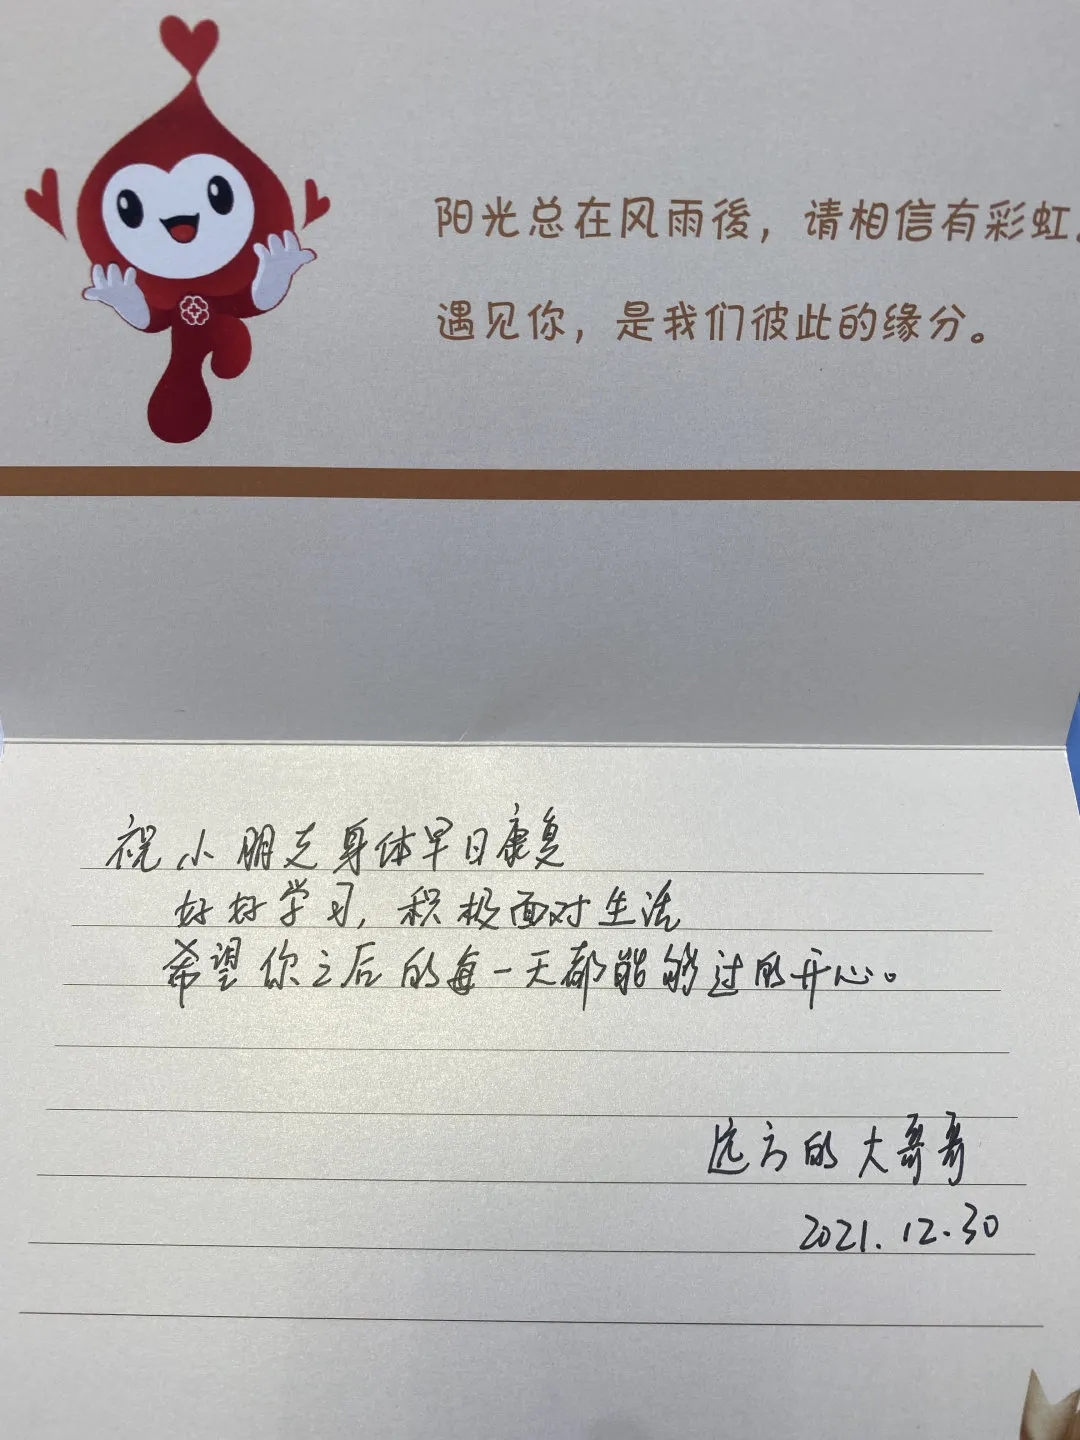 阳光总在风雨後，请相信有彩虹.
遇见你，是我们彼此的缘分。
祝小朋友身体早日康复
好好学习，积极面对生活
希望你之后的每一天都能够过的开心。
远方的大哥哥
2021.12.30